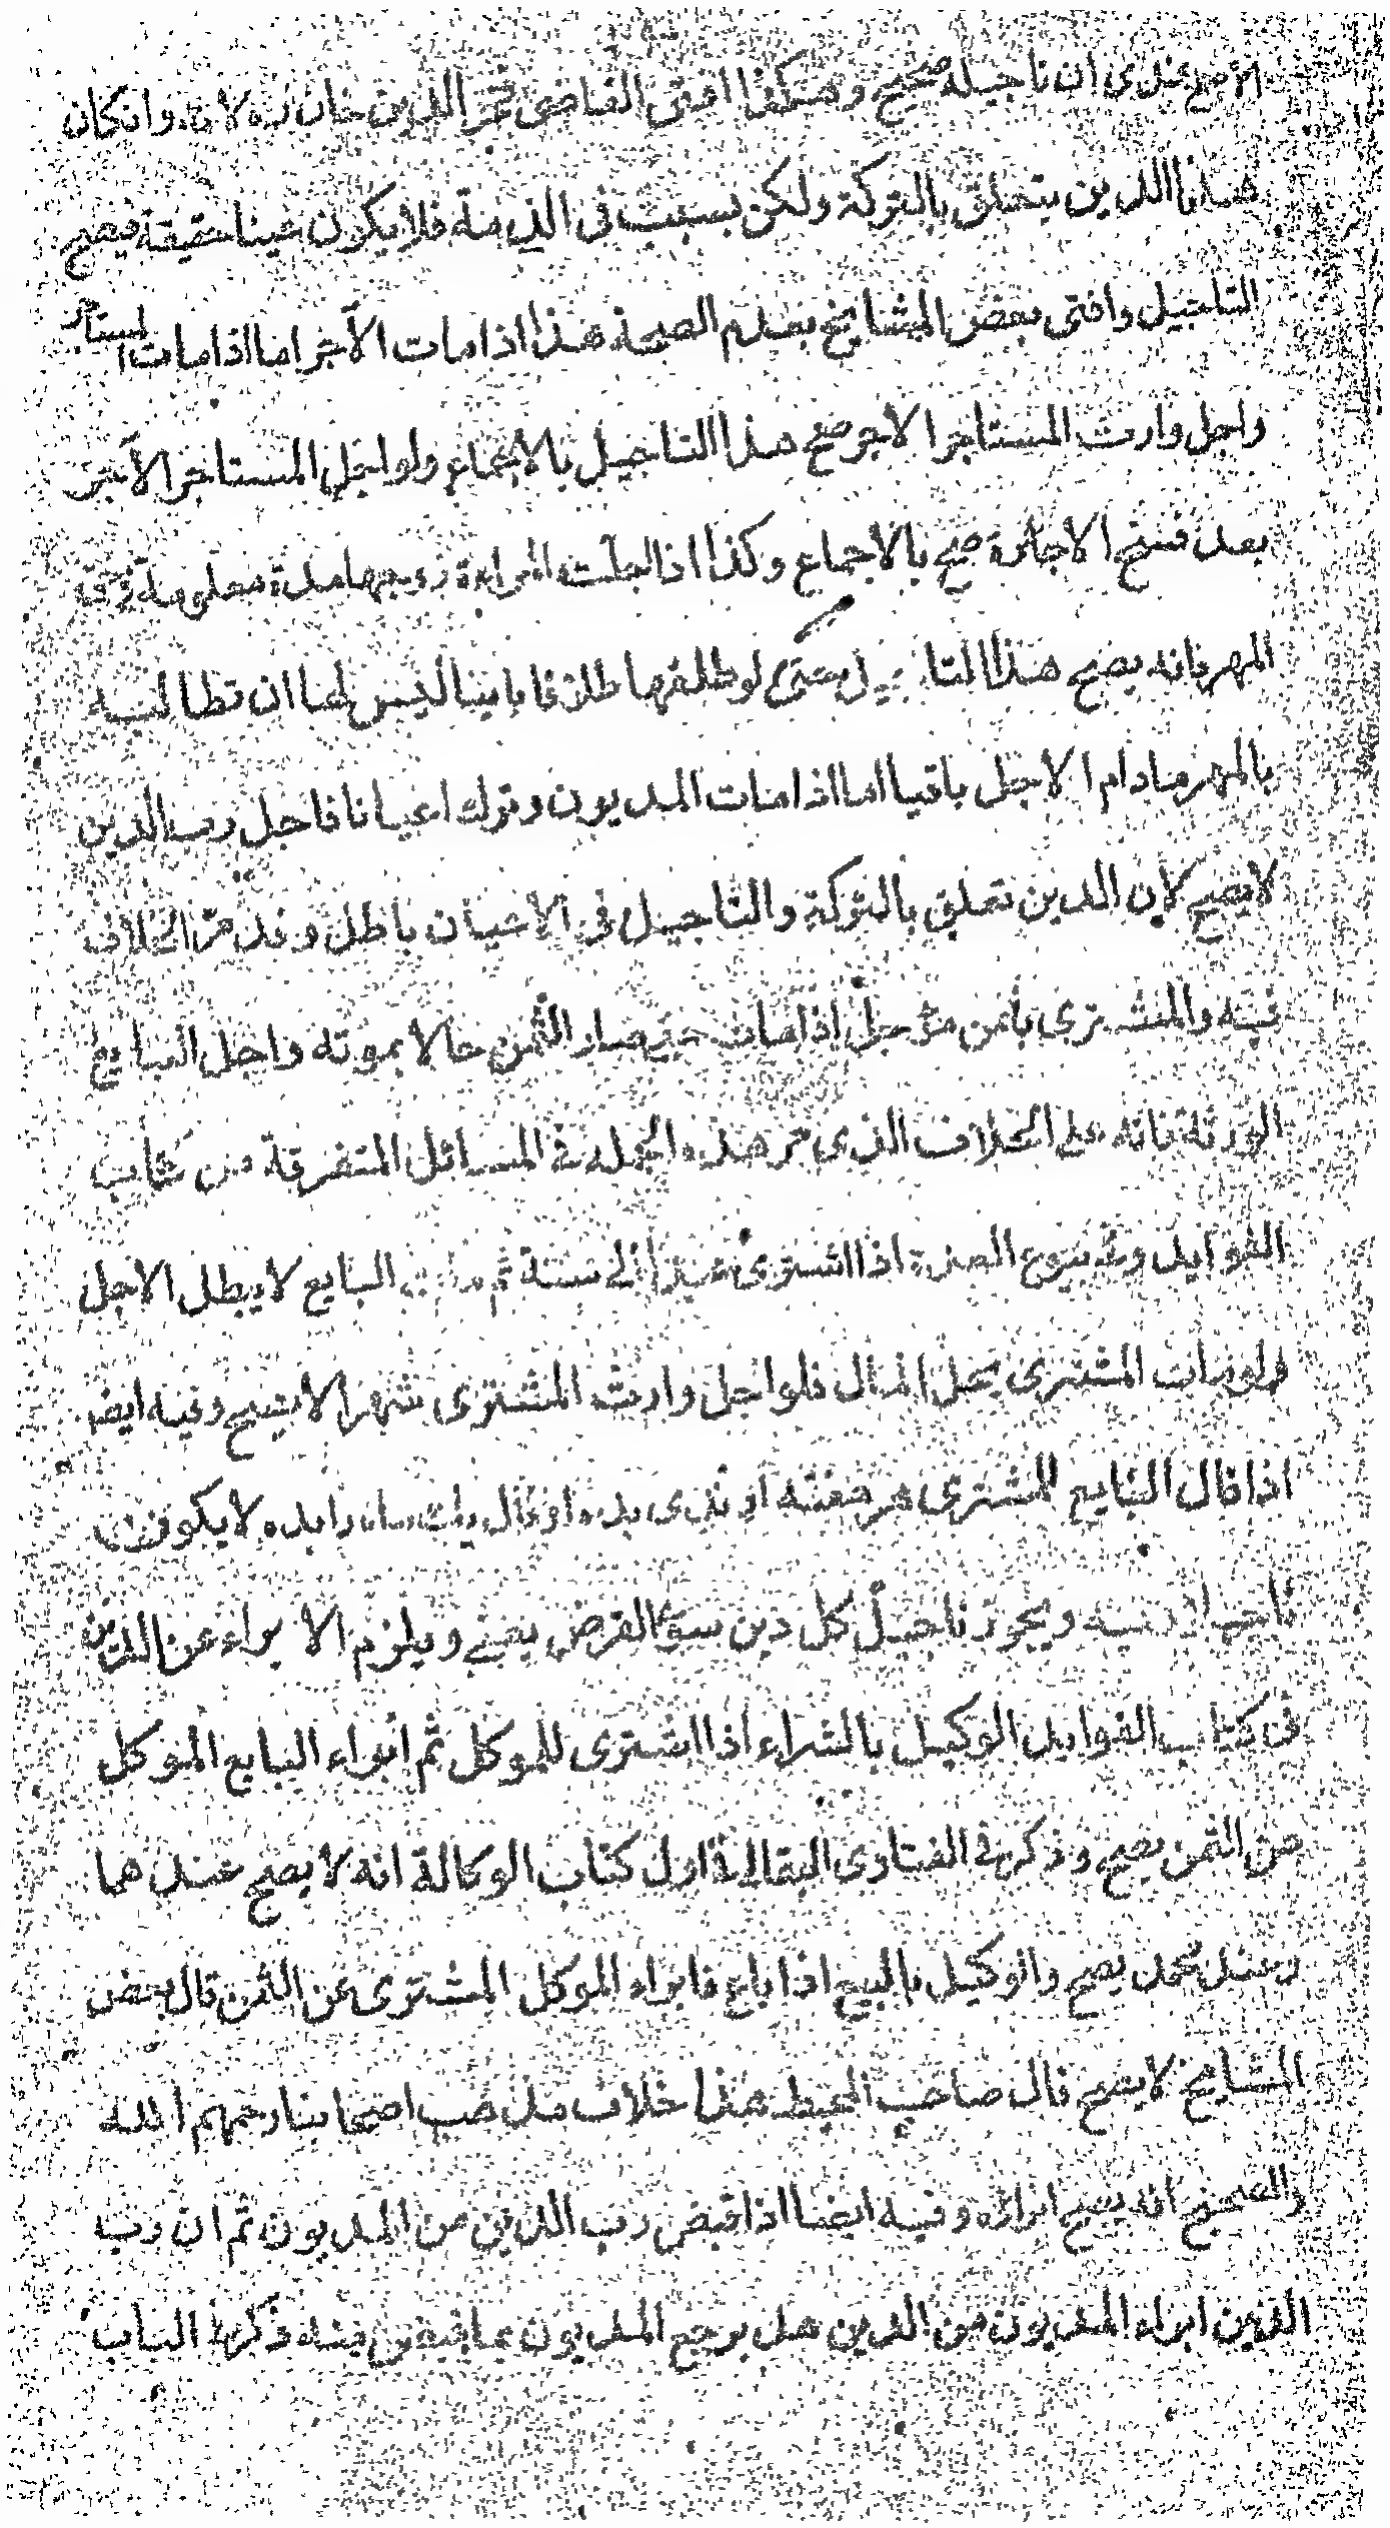 الاصح عندى ان تاجيله صحيح وهكذا افتى القاضى فخر الدين خان ره لانه وانكان
هذا الدين يتعلق بالتركة ولكن يسبب فى الذمة فلا يكون عينا حقيقة فيصح
التاجيل وافتى بعض المشايخ بعدم الصحة هذا اذا مات الآجر اما اذا مات المستاجر
واجل وارث المستاجر الاجر صح هذا التاجيل بالاجماع ولو اجل المستاجر الآجر
بعد فسخ الاجارة صح بالاجماع وكذا اذا اجلت المراءة زوجها مدة معلومة فى حق
المهر فانه يصح هذا التاجيل حتى لو طلقها طلاقا باينا ليس لها ان تطالبه
بالمهر مادام الاجل باقيا اما اذا مات المديون وترك اعيانا فاجل رب الدين
لا يصح لان الدين تعلق بالتركة والتاجيل فى الاعيان باطل وقد مر الخلاف
فيه والمشترى بثمن مؤجل اذا مات حتى صار الثمن حالا بموته واجل البايع
الورثة فانه على الخلاف الذى مر هذه الجملة فى المسائل المتفرقة من كتاب
الفوايد وفى بيوع الصدر اذا اشترى عبدا الى سنة ثم مات البايع لا يبطل الاجل
ولو مات المشترى يحل المال فلو اجل وارث المشترى شهرا لا يصح وفيه ايضا
اذا قال البايع للمشترى هر ... لا يكون
تاجيلا ... ويجوز تاجيل كل دين سوى القرض يعنى ويلزم الابراء عن الدين
فى كتاب الفوايد الوكيل بالشراء اذا اشترى للموكل ثم ابراء البايع الموكل
من الثمن يصح وذكر فى الفتاوى البقالى فى اول كتاب الوكالة انه لا يصح عندهما
وعند محمد يصح والوكيل بالبيع اذا باع فابراء الموكل المشترى عن الثمن قال بعض
المشايخ لا يصح قال صاحب المحيط هذا خلاف مذهب اصحابنا رحمهم الله
والصحيح انه يصح ابراؤه وفيه ايضا اذا قبض رب الدين من المديون ثم ان رب
الدين ابراء المديون من الدين هل يرجع المديون بما قبض منه ذكر فى الباب